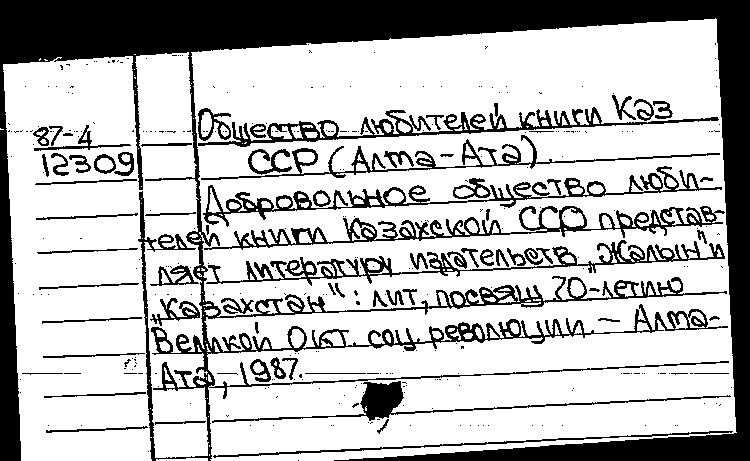 87-4
12309
Общество любителей книги Каз
ССР (Алма-Ата).
Добровольное общество люби-
телей книги Казахской ССР представ-
ляет литературу издательств „Жалын" и
„Казахстан": лит, посвящ 70-летию
Великой Окт. соц. революции. — Алма-
Ата, 1987.